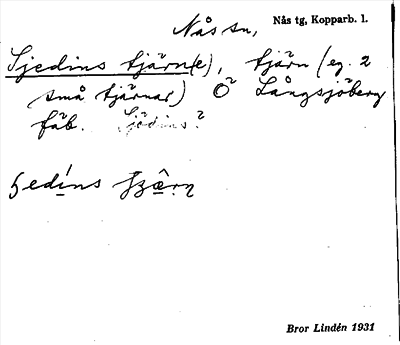 Nås sn, Nås tg, Kopparb. l.
Sjedins tjärn(e), tjärn (eg. 2
små tjärnar) Ö Långsjöberg
fäb. Sjödins?
Bror Lindén 1931